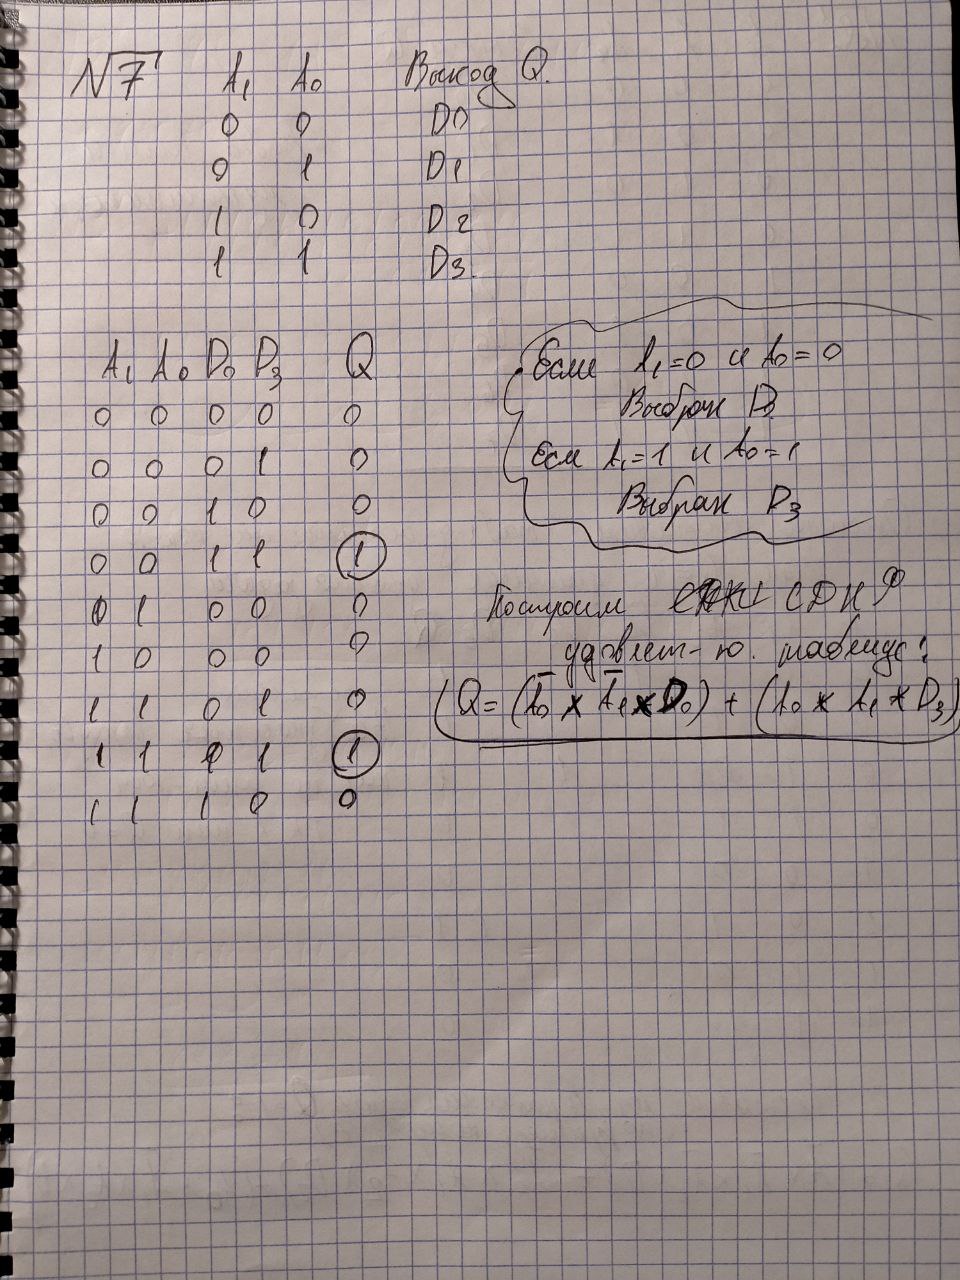 №7
A₁ A₀ Выход Q.
0 0 D0
0 1 D1
1 0 D2
1 1 D3.
A₁ A₀ D₀ D₃ Q
0 0 0 0 0
0 0 0 1 0
0 0 1 0 0
0 0 1 1 1
0 1 0 0 0
1 0 0 0 0
1 1 0 1 0
1 1 0 1 1
1 1 1 0 0
Если A₁=0 и A₀=0
Выбран D
Если A₁=1 и A₀=1
Выбран D₃
Построим СДНФ
удовлет-ю. таблице:
(Q=(A̅₀ × A̅₁ × D₀) + (A₀ × A₁ × D₃)